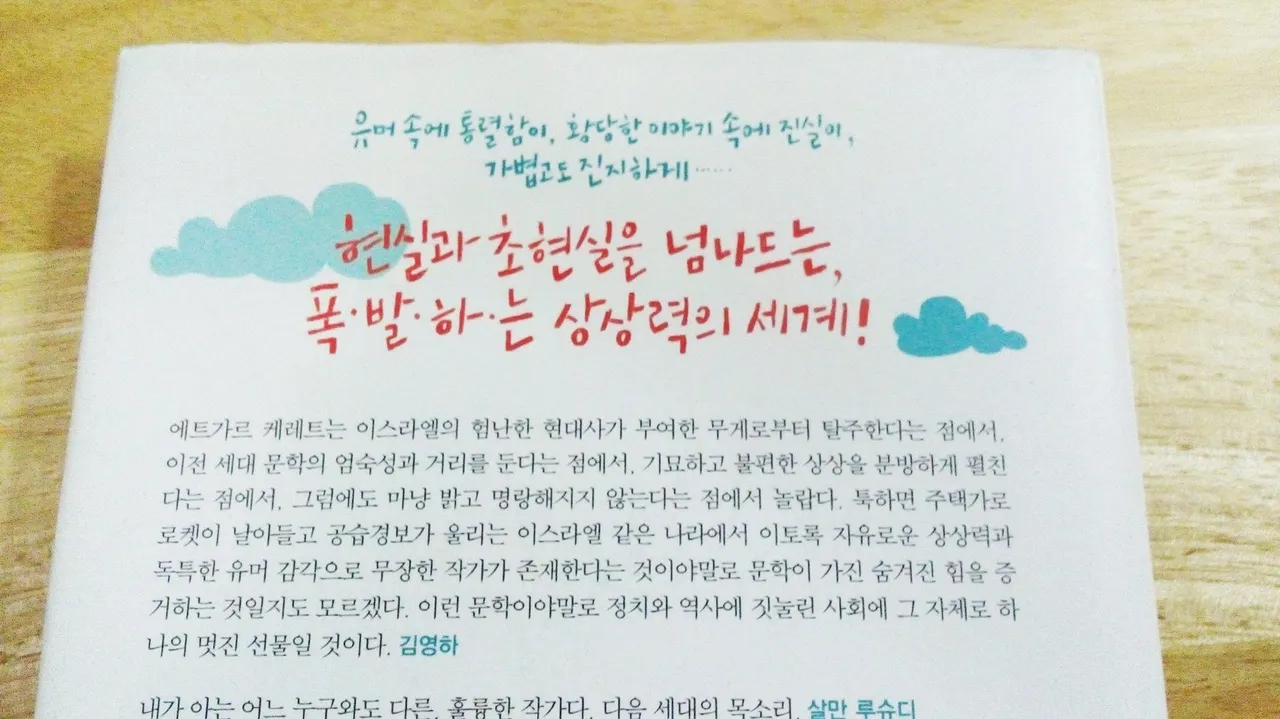 유머 속에 통렬함이, 황당한 이야기 속에 진실이,
가볍고도 진지하게……
현실과 초현실을 넘나드는,
폭·발·하·는 상상력의 세계!
에트가르 케레트는 이스라엘의 험난한 현대사가 부여한 무게로부터 탈주한다는 점에서,
이전 세대 문학의 엄숙성과 거리를 둔다는 점에서, 기묘하고 불편한 상상을 분방하게 펼친
다는 점에서, 그럼에도 마냥 밝고 명랑해지지 않는다는 점에서 놀랍다. 툭하면 주택가로
로켓이 날아들고 공습경보가 울리는 이스라엘 같은 나라에서 이토록 자유로운 상상력과
독특한 유머 감각으로 무장한 작가가 존재한다는 것이야말로 문학이 가진 숨겨진 힘을 증
거하는 것일지도 모르겠다. 이런 문학이야말로 정치와 역사에 짓눌린 사회에 그 자체로 하
나의 멋진 선물일 것이다. 김영하
내가 아는 어느 누구와도 다른, 훌륭한 작가다. 다음 세대의 목소리. 살만 루슈디